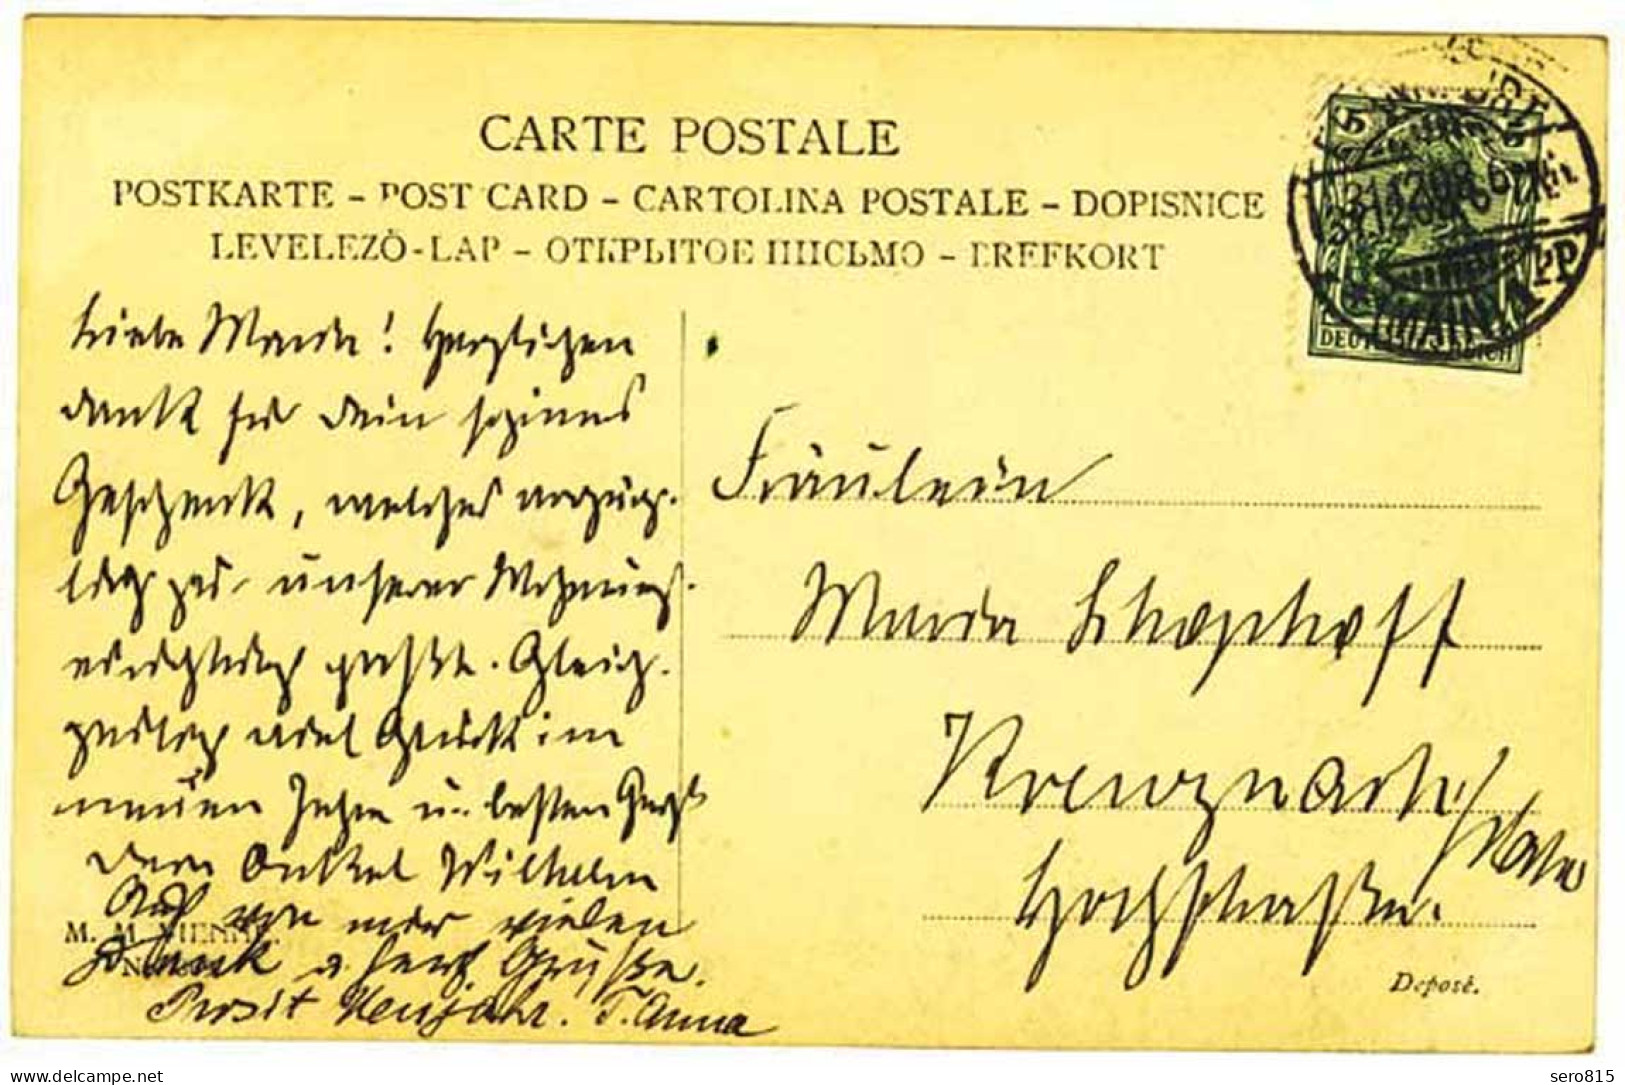 CARTE POSTALE
POSTKARTE – POST CARD – CARTOLINA POSTALE – DOPISNICE
LEVELEZÖ-LAP – ОТКРЫТОЕ ПИСЬМО – BREFKORT
5 5
31.12.08.6-7N.
(MAIN) 1
DEUTSCHES REICH
Liebe Maria! Herzlichen
Dank für Dein schönes
Geschenk, welches vorzüg-
lich zu unserer Wohnungs-
einrichtung paßt. Gleich-
zeitig viel Glück im
neuen Jahre u. besten Gruß
Dein Onkel Wilhelm
Auch von mir vielen
Dank u herzl Grüße.
Prosit Neujahr. T. Anna
Fräulein
Maria
Kreuznach/Nahe
Hochstraße.
M. M. VIENNE.
Deposé.
sero815